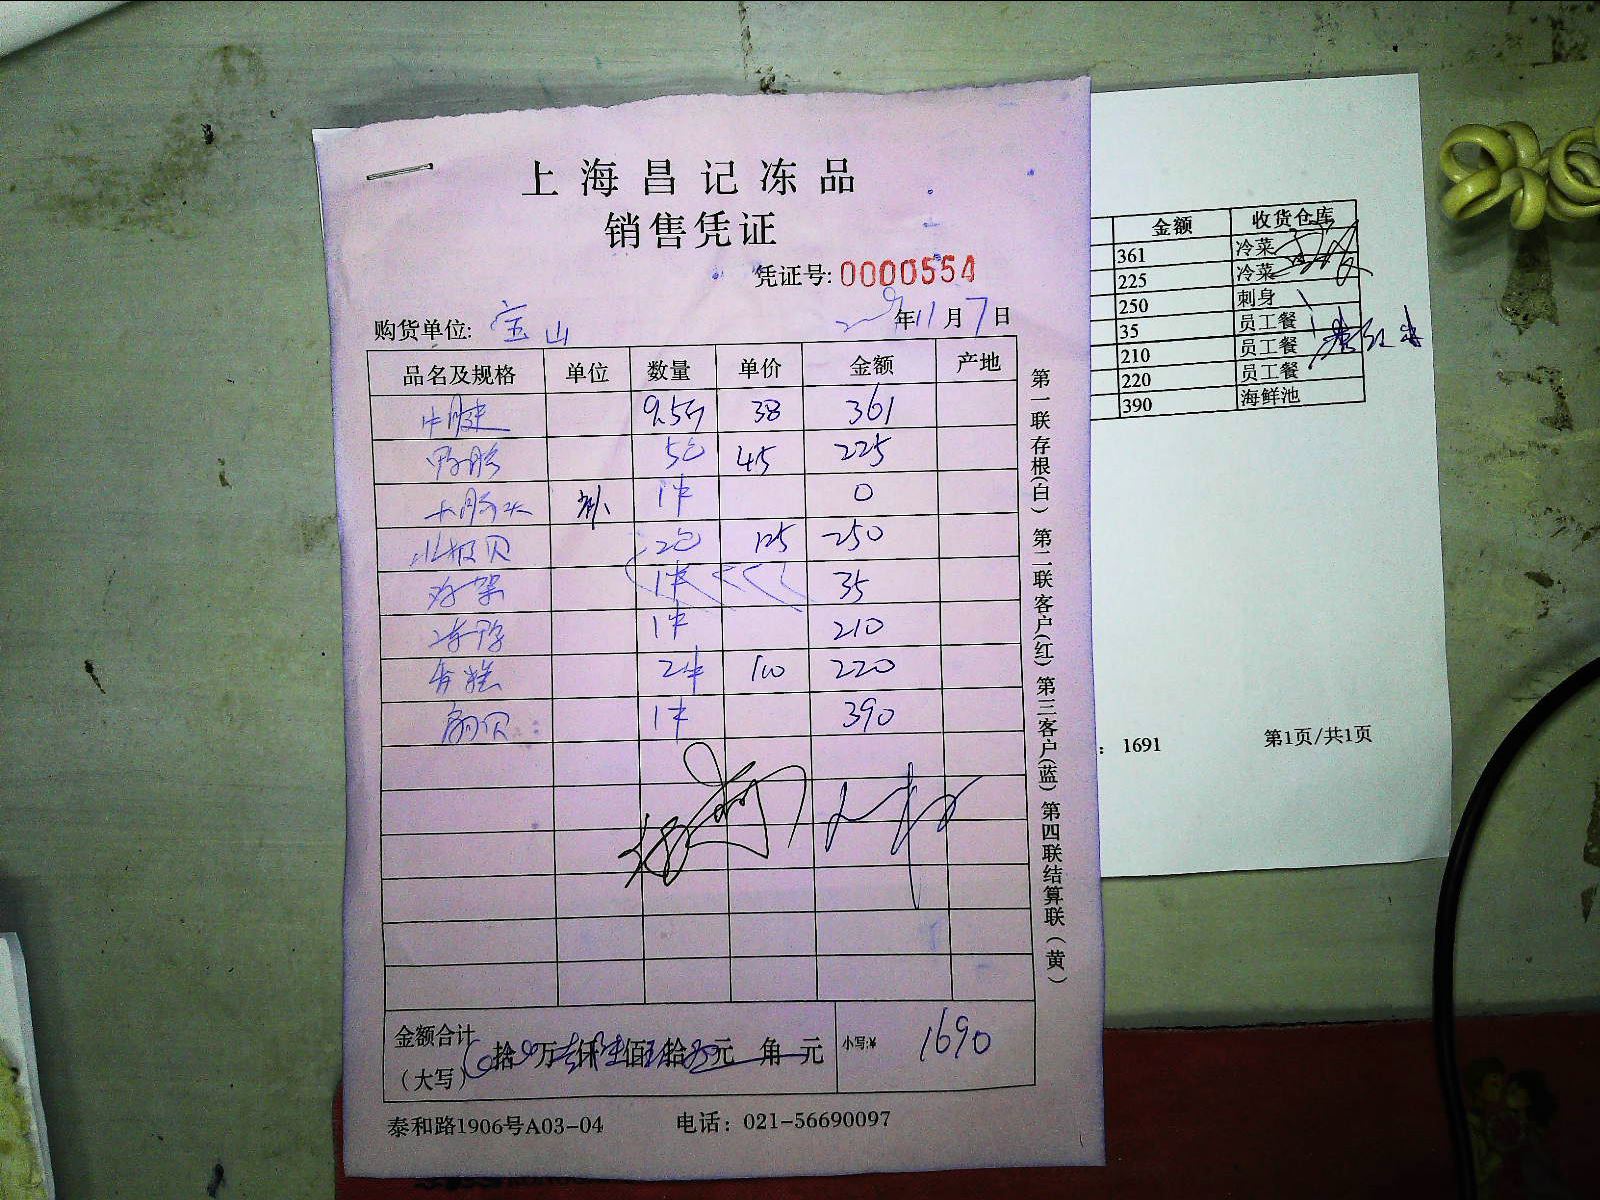 上海昌记冻品
销售凭证
凭证号: 0000554
购货单位: 宝山 年11月7日
品名及规格 单位 数量 单价 金额 产地
9.5斤 38 361
5包 45 225
1件 0
北极贝 2包 125 250
鸡架 1件 35
冻鸭 1件 210
年糕 2件 110 220
扇贝 1件 390
金额合计
(大写) 拾 万 仟 佰 拾 元 角 元 小写:¥ 1690
泰和路1906号A03-04 电话: 021-56690097
第一联存根(白) 第二联客户(红) 第三客户(蓝) 第四联结算联(黄)
金额 收货仓库
361 冷菜
225 冷菜
250 刺身
35 员工餐
210 员工餐
220 员工餐
390 海鲜池
: 1691 第1页/共1页